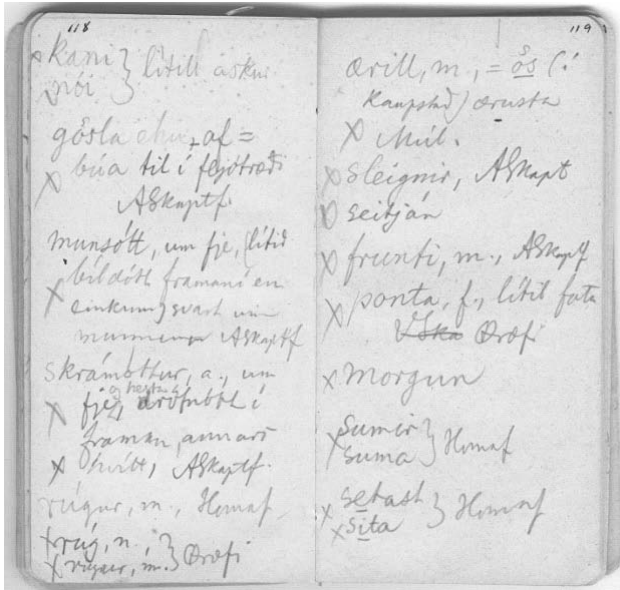 118
kani } lítill askur
nói
gösla + af =
búa til í
ASkaptf.
munsótt, um fje, (lítið
bíldótt framaní en
einkum) svart um
munninn ASkaptf
skrámóttur, a., um
og hesta
fje, dröfnótt í
framan, annars
hvítt, ASkaptf.
rúgur, m., Hornaf.
rúg, n., } Öræfi
rúgur, m.
119
ærill, m., = ós (í
kaupstað) ærusta
Múl.
sleignir, ASkapt
seitján
frunti, m., ASkaptf
ponta, f., lítil fata
Öræfi
morgun
sumir } Hornaf
suma
setast } Hornaf
sita